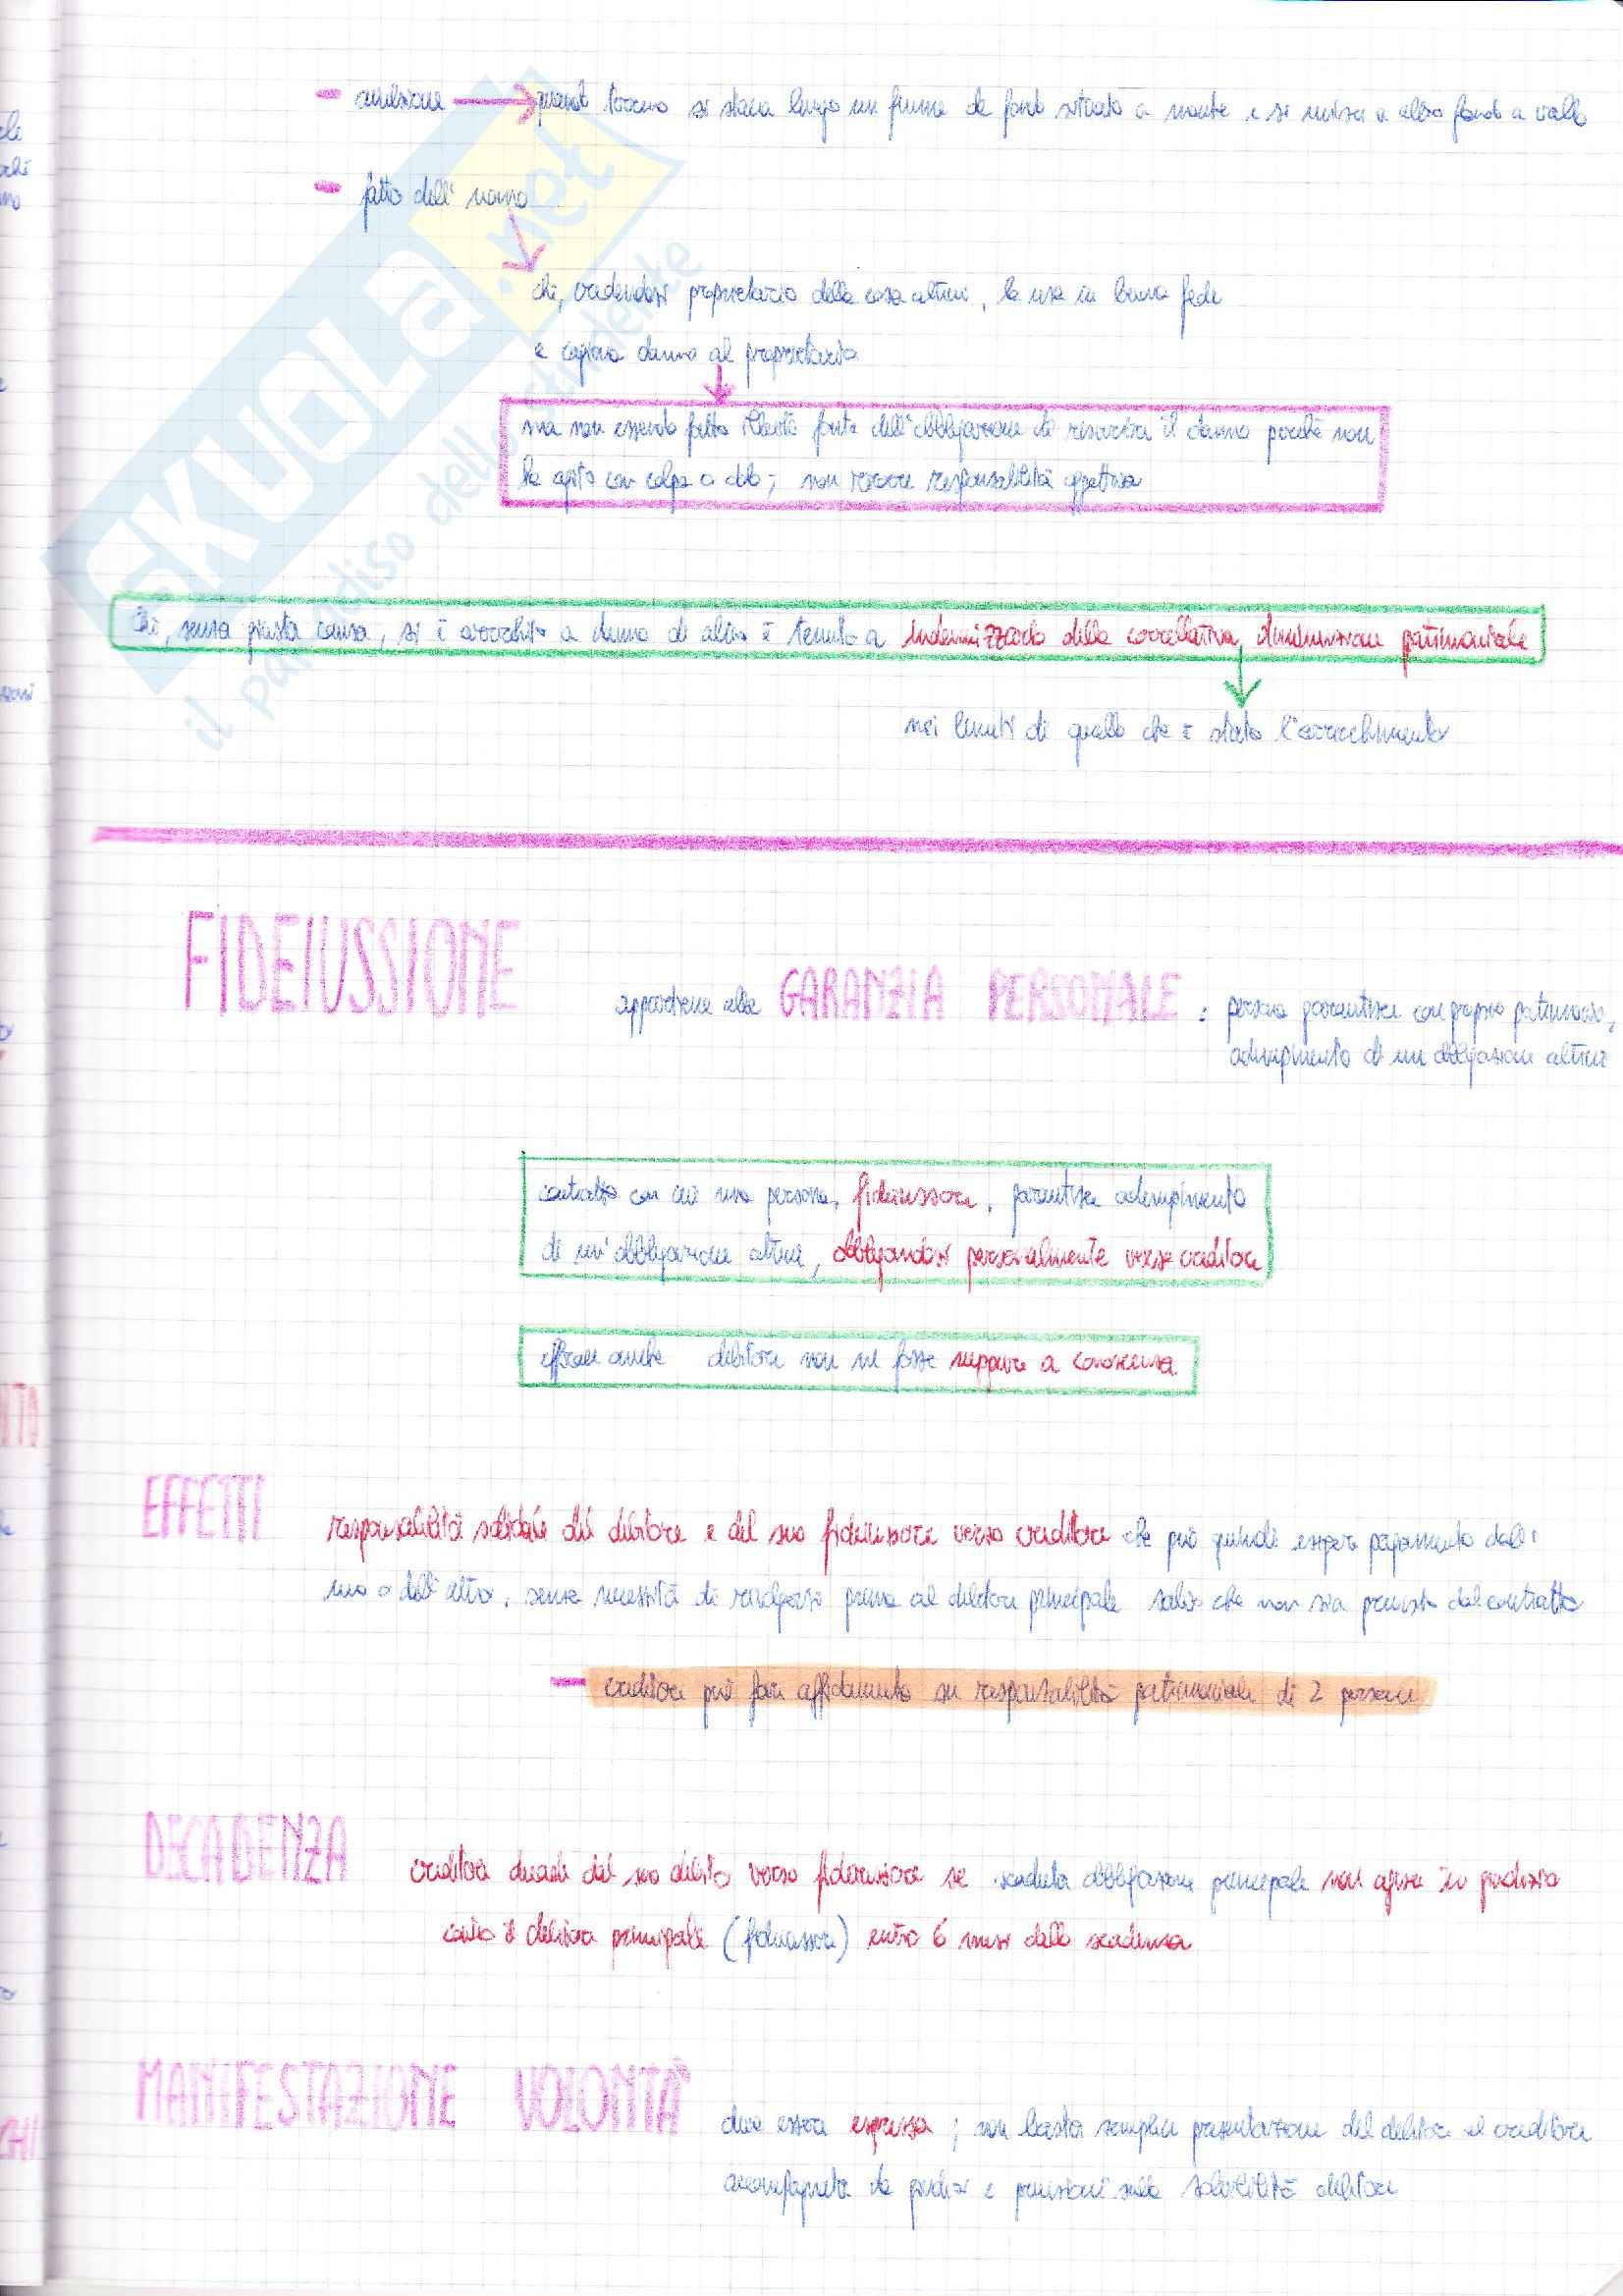 - avulsione → quando terreno si stacca lungo un fiume da fondo situato a monte e si unisce a altro fondo a valle
- fatto dell'uomo
chi, credendosi proprietario della cosa altrui, la usa in buona fede
e cagiona danno al proprietario
ma non essendo fatto illecito fonte dell'obbligazione di risarcire il danno perché non
ha agito con colpa o dolo; non ricorre responsabilità oggettiva
Chi, senza giusta causa, si è arricchito a danno di altri è tenuto a indennizzarlo della correlativa diminuzione patrimoniale
nei limiti di quello che è stato l'arricchimento
FIDEIUSSIONE
appartiene alla GARANZIA PERSONALE : persona garantisce con proprio patrimonio,
adempimento di un obbligazione altrui
contratto con cui una persona, fideiussore, garantisce adempimento
di un'obbligazione altrui, obbligandosi personalmente verso creditore
efficace anche debitore non ne fosse neppure a conoscenza
EFFETTI
responsabilità solidale del debitore e del suo fideiussore verso creditore che può quindi esigere pagamento dall'
uno o dall'altro, senza necessità di rivolgersi prima al debitore principale salvo che non sia previsto dal contratto
- creditore può fare affidamento su responsabilità patrimoniale di 2 persone
DECADENZA
creditore decade dal suo diritto verso fideiussore se scaduta obbligazione principale non agisce in giudizio
contro il debitore principale (fideiussore) entro 6 mesi dalla scadenza
MANIFESTAZIONE VOLONTÀ
deve essere espressa; non basta semplice presentazione del debitore al creditore
accompagnata da giudizi e previsioni sulla solvibilità debitore
SKUOLA.net
il paradiso dello studente